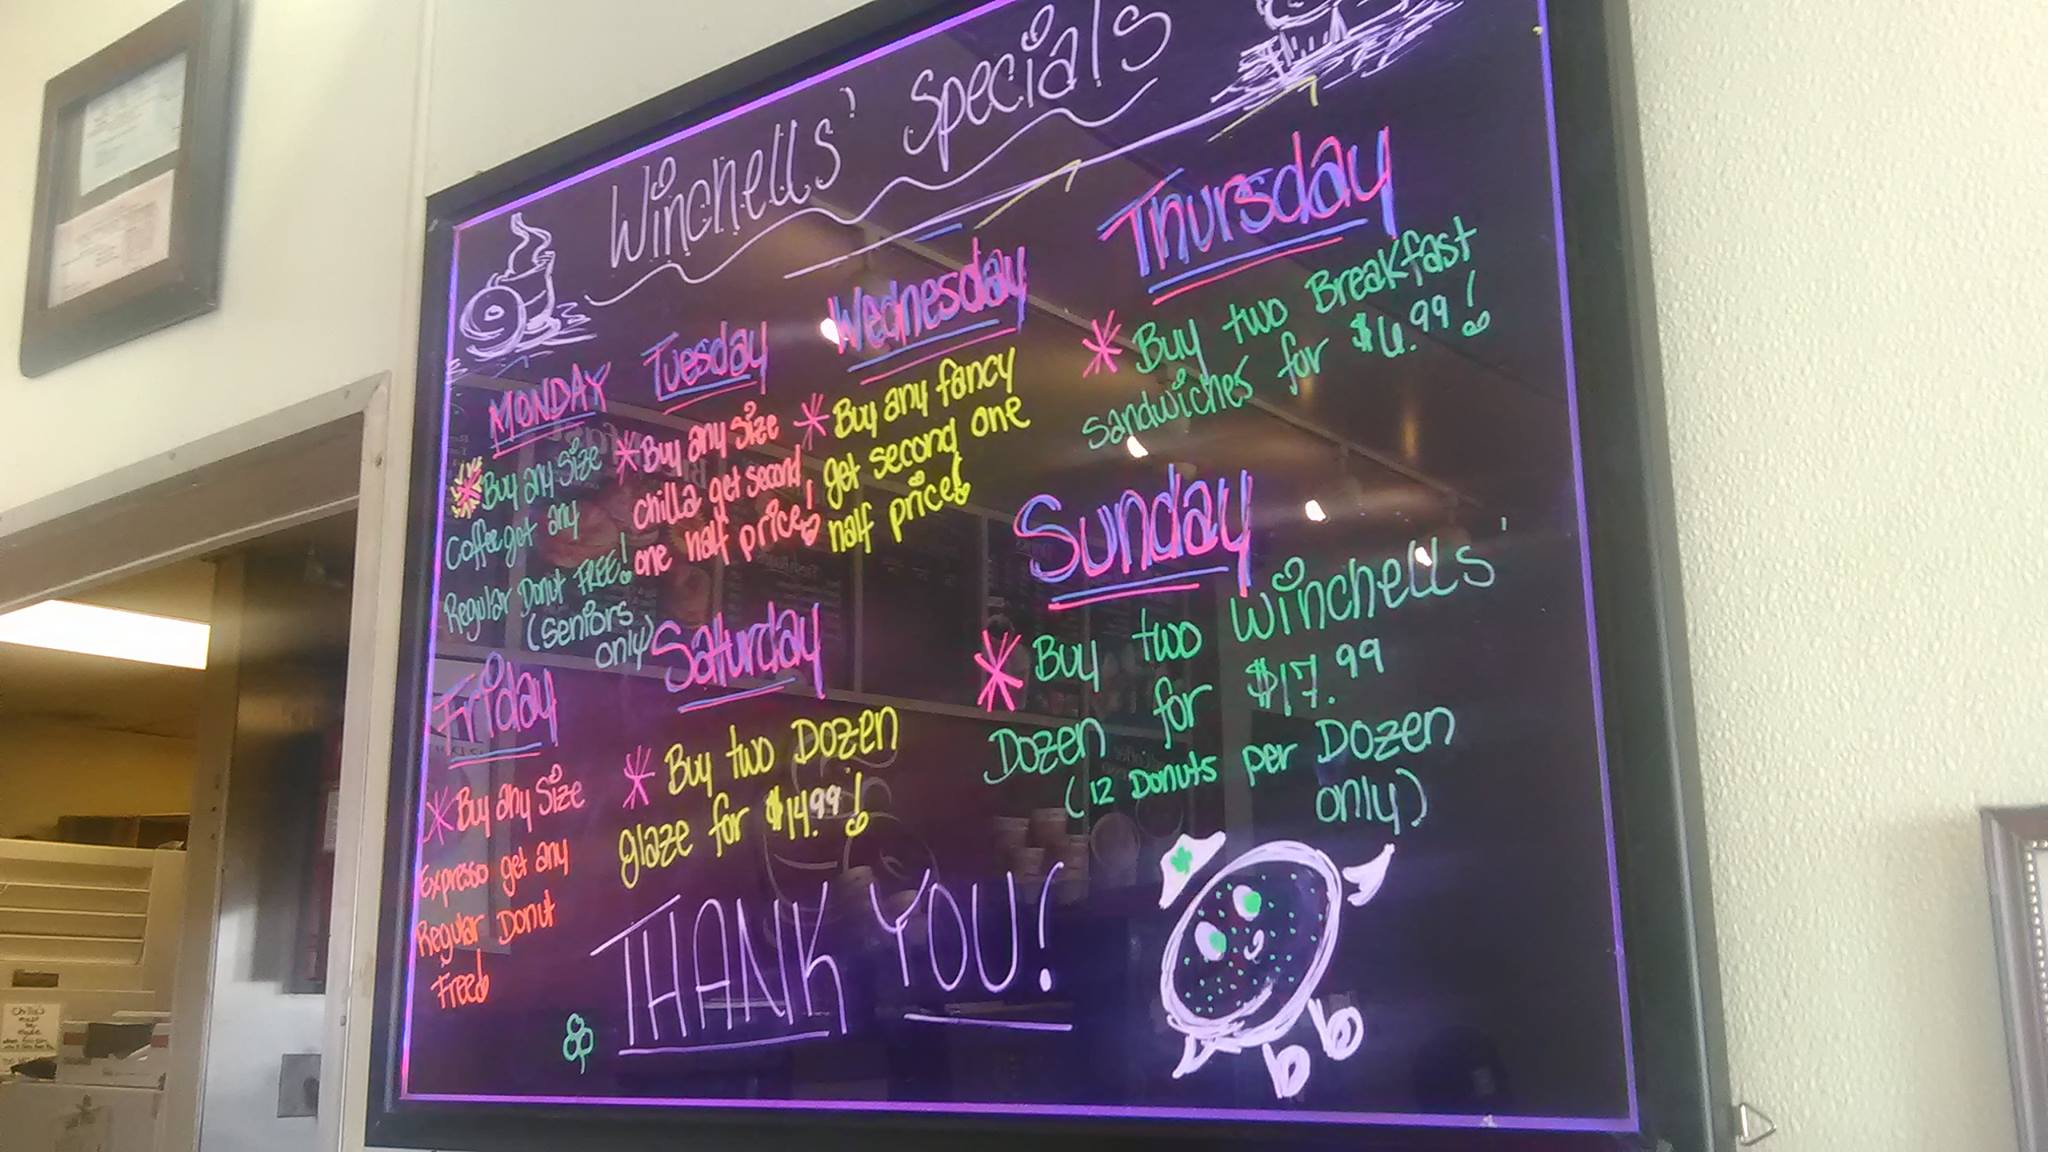 Winchells' Specials
MONDAY
Buy any Size
Coffee get any
Regular Donut FREE!
(Seniors
only)
Tuesday
Buy any size
chilla get second
one half price!
Wednesday
Buy any fancy
get second one
half price!
Thursday
Buy two Breakfast
sandwiches for $6.99!
Friday
Buy any Size
Expresso get any
Regular Donut
Free!
Saturday
Buy two Dozen
glaze for $14.99!
Sunday
Buy two Winchells'
Dozen for $17.99
(12 Donuts per Dozen
only)
THANK YOU!